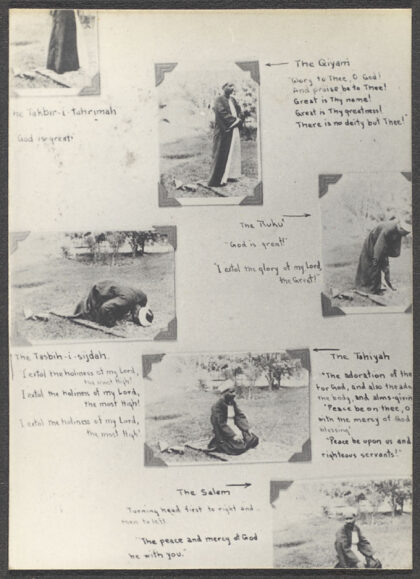 The Qiyam
"Glory to Thee, O God!
And praise be to Thee!
Great is Thy name!
Great is Thy greatness!
There is no deity but Thee!"
he Takbir-i-Tahrimah
God is great!
The Ruku'
"God is great!"
"I extol the glory of my Lord,
the Great!"
The Tasbih-i-sijdah.
I extol the holiness of my Lord,
the most High!
I extol the holiness of my Lord,
the most High!
I extol the holiness of my Lord,
the most High!
The Tahiyah
"The adoration of the
for God, and also the ado
the body, and alms-givin
"Peace be on thee, O
with the mercy of God
blessing"
"Peace be upon us and
righteous servants!"
The Salam
Turning head first to right and
then to left.
"The peace and mercy of God
be with you."